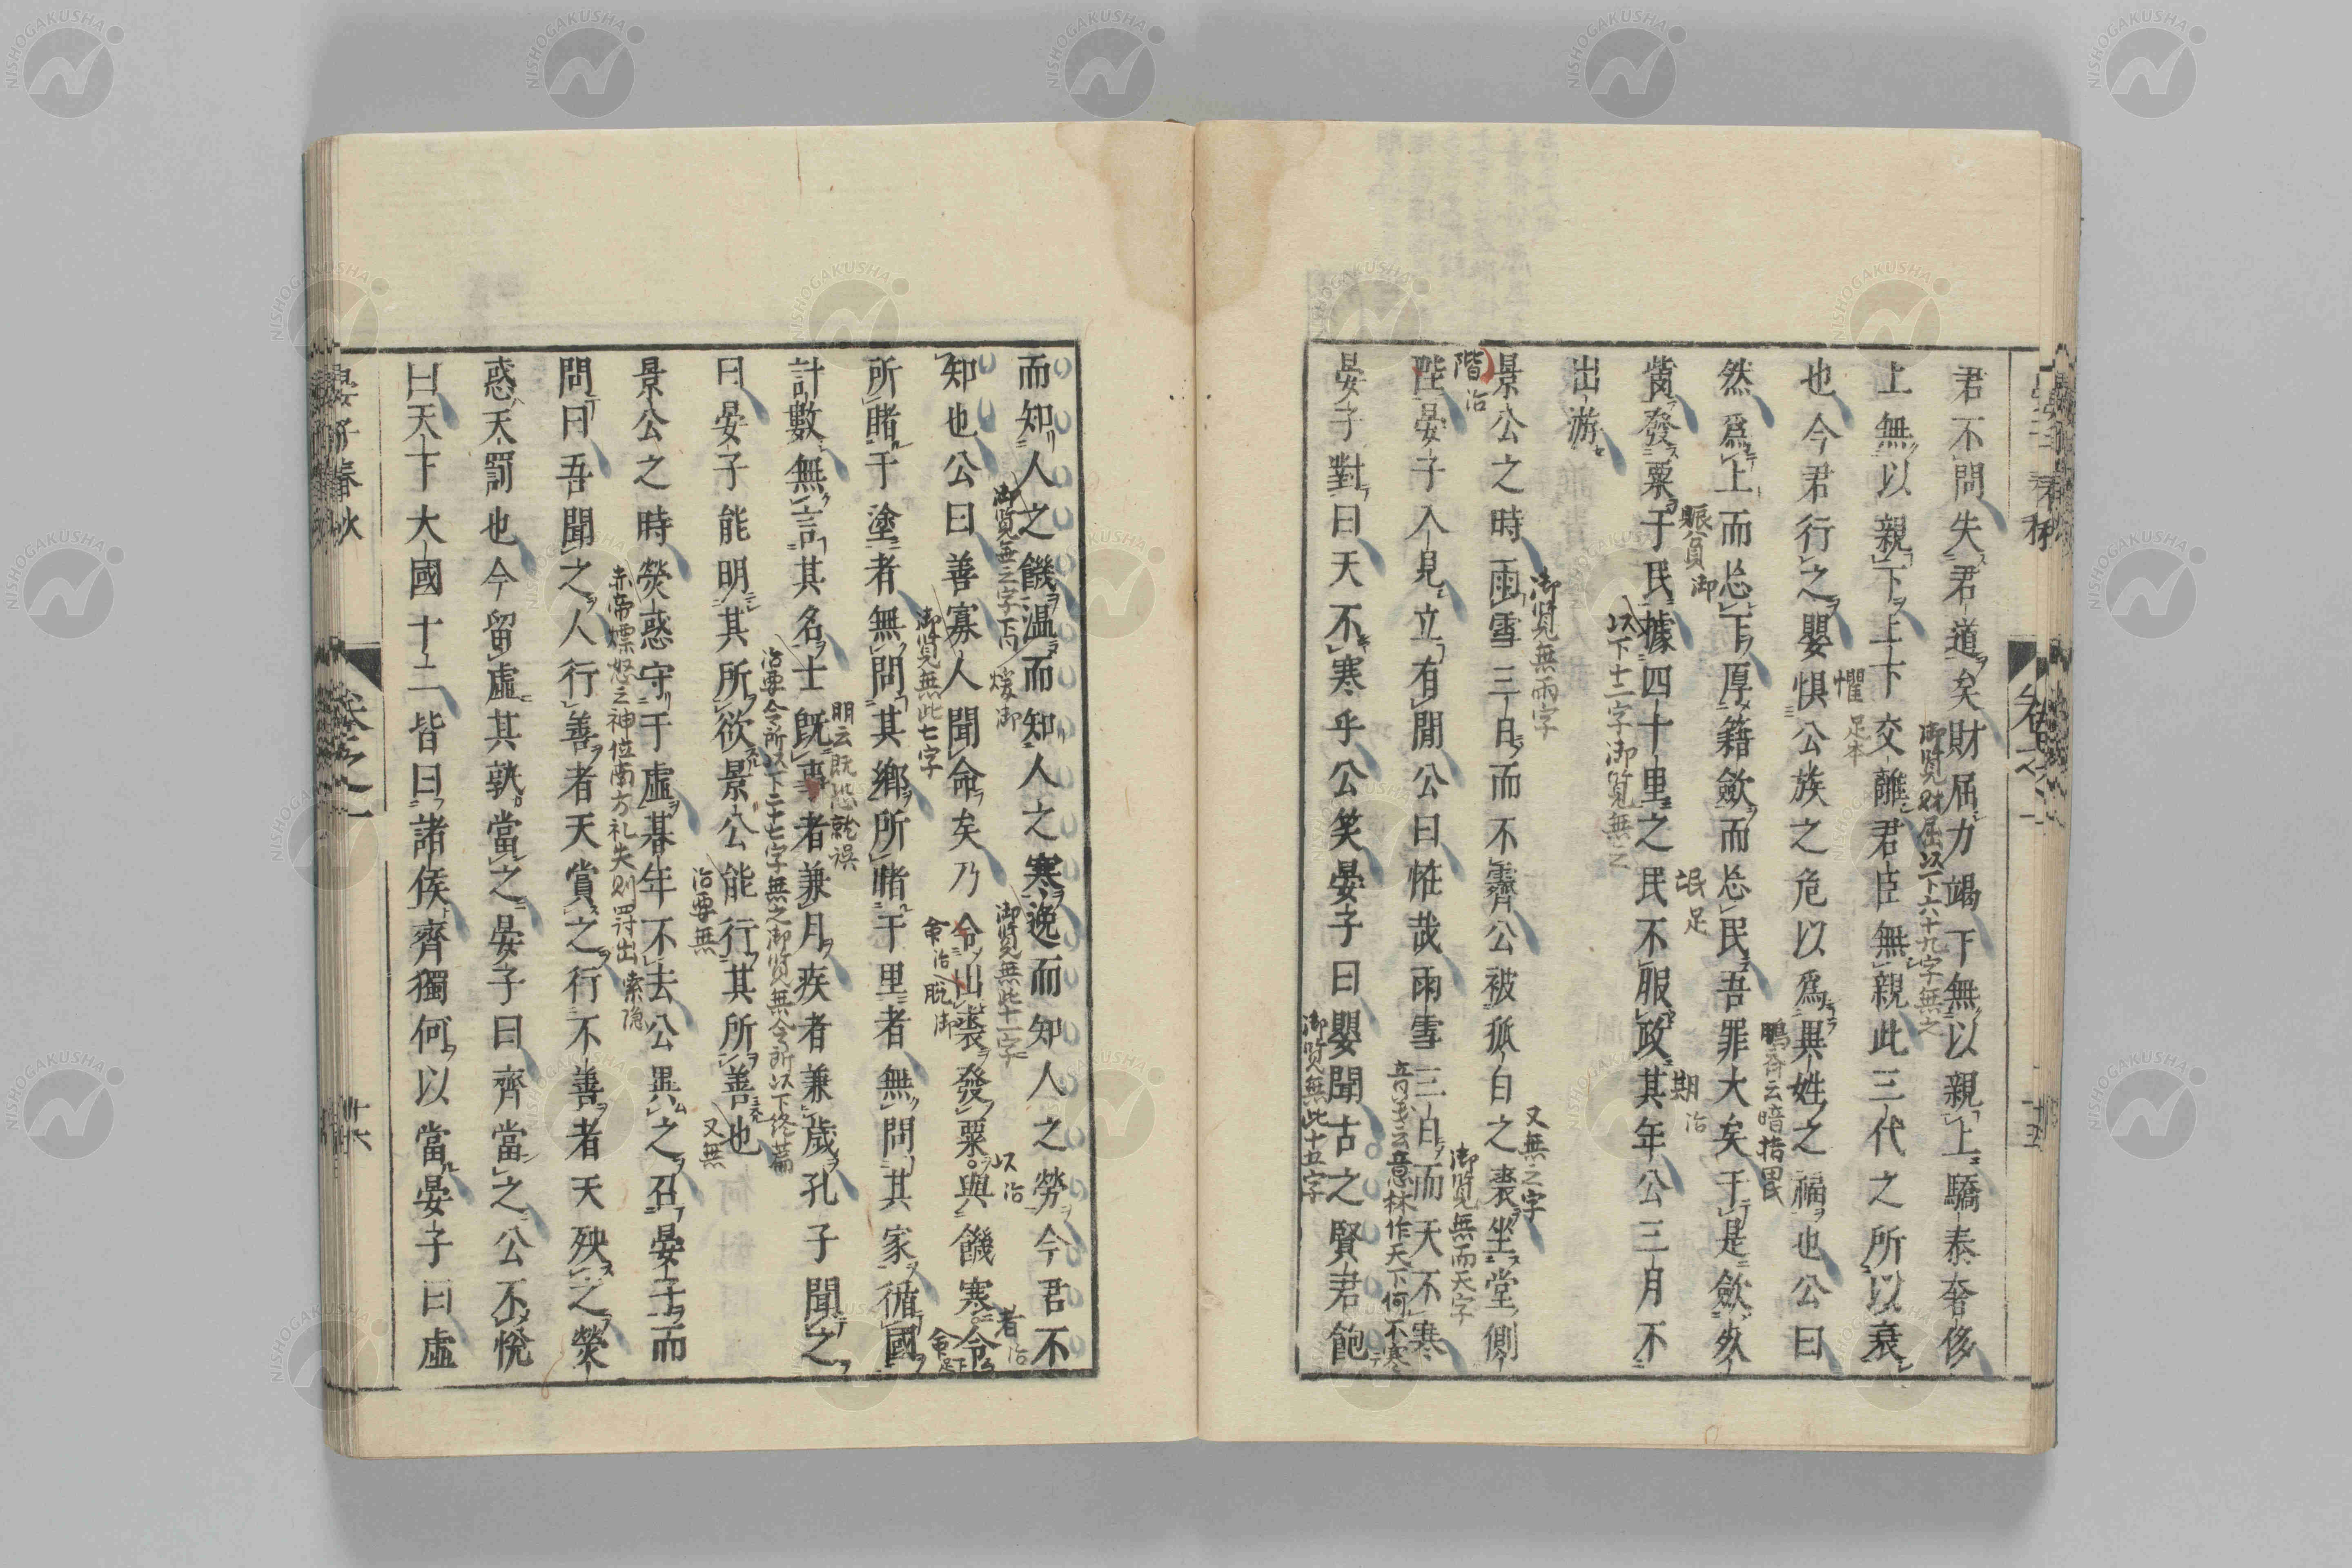 君不問失君道矣財屈力竭下無以親上驕泰奢侈
上無以親下上下交離君臣無親此三代之所以衰
也今君行之嬰惧公族之危以爲異姓之福也公曰
然爲上而忘下厚籍斂而忘民吾罪大矣于是斂死
胔發粟于民據四十里之民不服政其年公三月不
出游
景公之時雨雪三日而不霽公被狐白之裘坐堂側
陛晏子入見立有閒公曰恠哉雨雪三日而天不寒
晏子對曰天不寒乎公笑晏子曰嬰聞古之賢君飽
御覽財屈以下六十九字無之
懼 足本
鵬斎云暗指田氏
賑貧 御
氓足
期 治
以下十二字御覽無之
御覽無雨字
又無之字
階 治
御覽無而天字
意林作天下何不寒
御覽無此十五字
而知人之饑温而知人之寒逸而知人之勞今君不
知也公曰善寡人聞命矣乃令出裘發粟與饑寒令
所睹于塗者無問其鄉所睹于里者無問其家循國
計數無言其名士既事者兼月疾者兼歲孔子聞之
曰晏子能明其所欲景公能行其所善也
景公之時熒惑守于虛朞年不去公異之召晏子而
問曰吾聞之人行善者天賞之行不善者天殃之熒
惑天罰也今留虛其孰當之晏子曰齊當之公不悅
曰天下大國十二皆曰諸侯齊獨何以當晏子曰虛
御覽無之字下同
煖 御
御覽無此十一字
以 治
者 治
御覽無此七字
命 治
脱 御
明云既恐就誤
治要令所以下二十七字無之御覽無令所以下終篇
治要無
又無
赤帝熛怒之神位南方礼失則罰出 索隠
晏子春秋
卷之一
十六
NISHOGAKUSHA